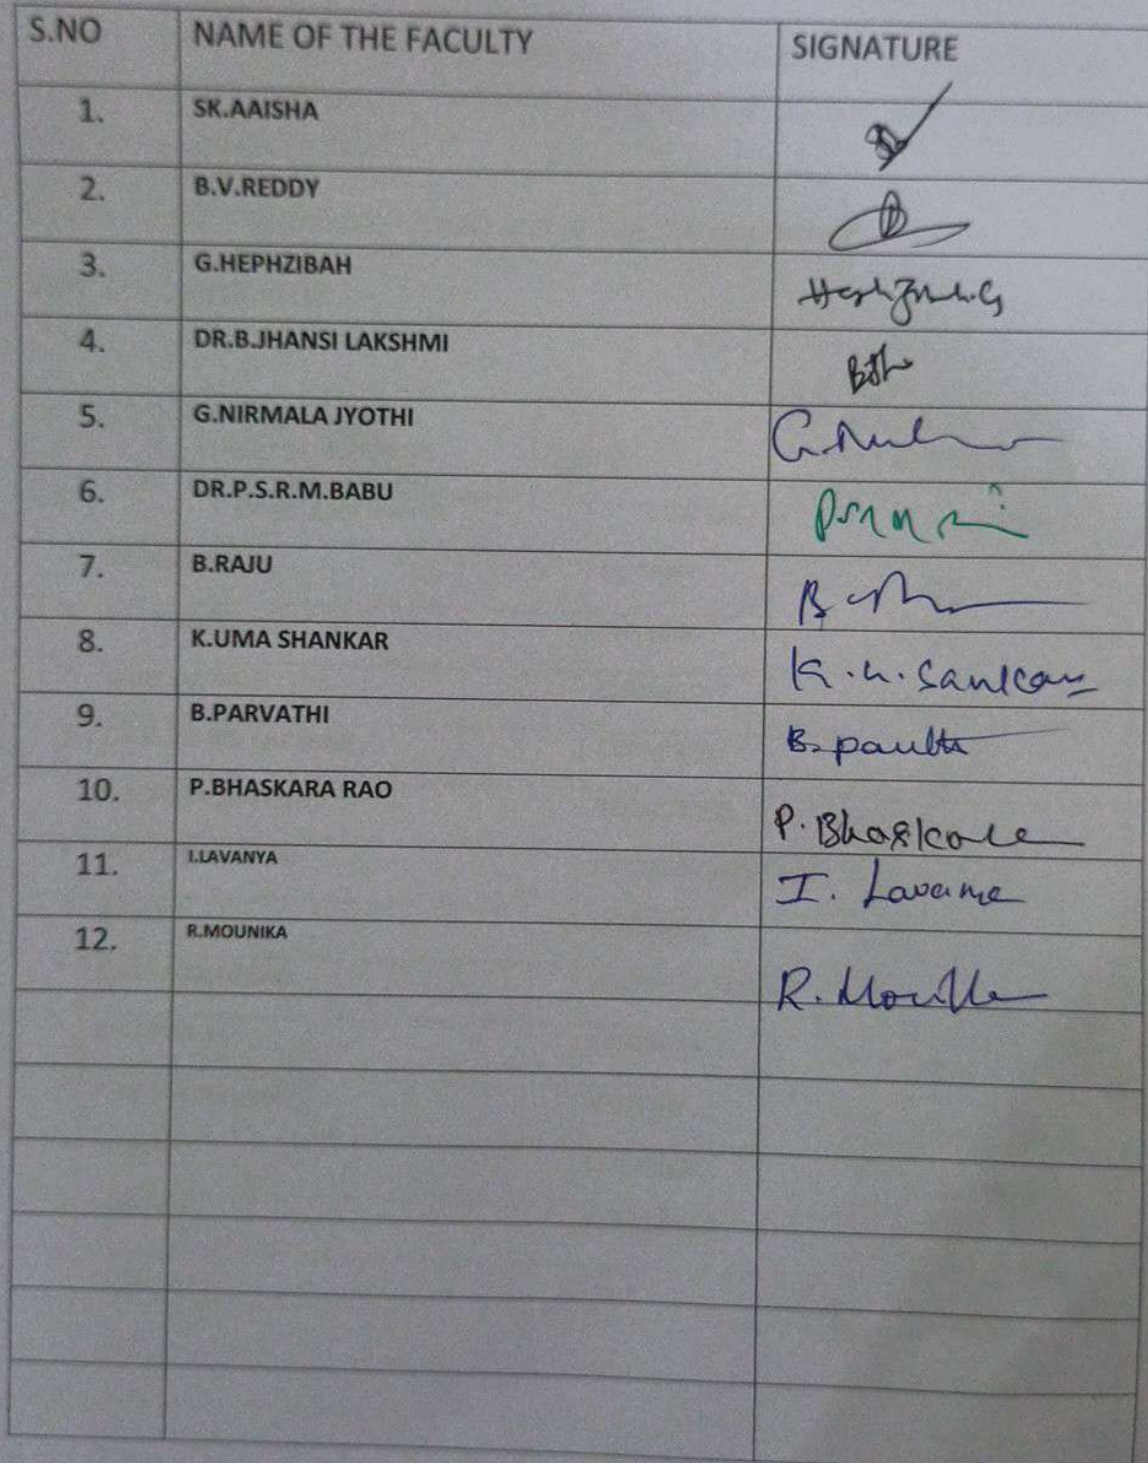 S.NO NAME OF THE FACULTY SIGNATURE
1. SK.AAISHA
2. B.V.REDDY
3. G.HEPHZIBAH
4. DR.B.JHANSI LAKSHMI
5. G.NIRMALA JYOTHI
6. DR.P.S.R.M.BABU
7. B.RAJU
8. K.UMA SHANKAR K.U.Sankar
9. B.PARVATHI
10. P.BHASKARA RAO P.Bhaskara
11. I.LAVANYA I. Lavanya
12. R.MOUNIKA